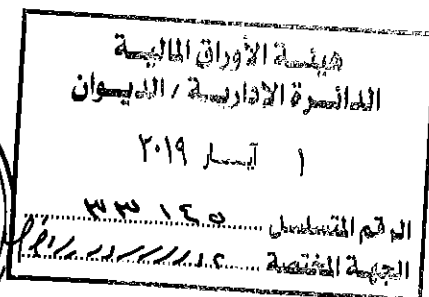 هيئة الأوراق المالية
الدائرة الإدارية / الديوان
١ آيار ٢٠١٩
الرقم المتسلسل ٣٣١٤٥
الجهة المختصة